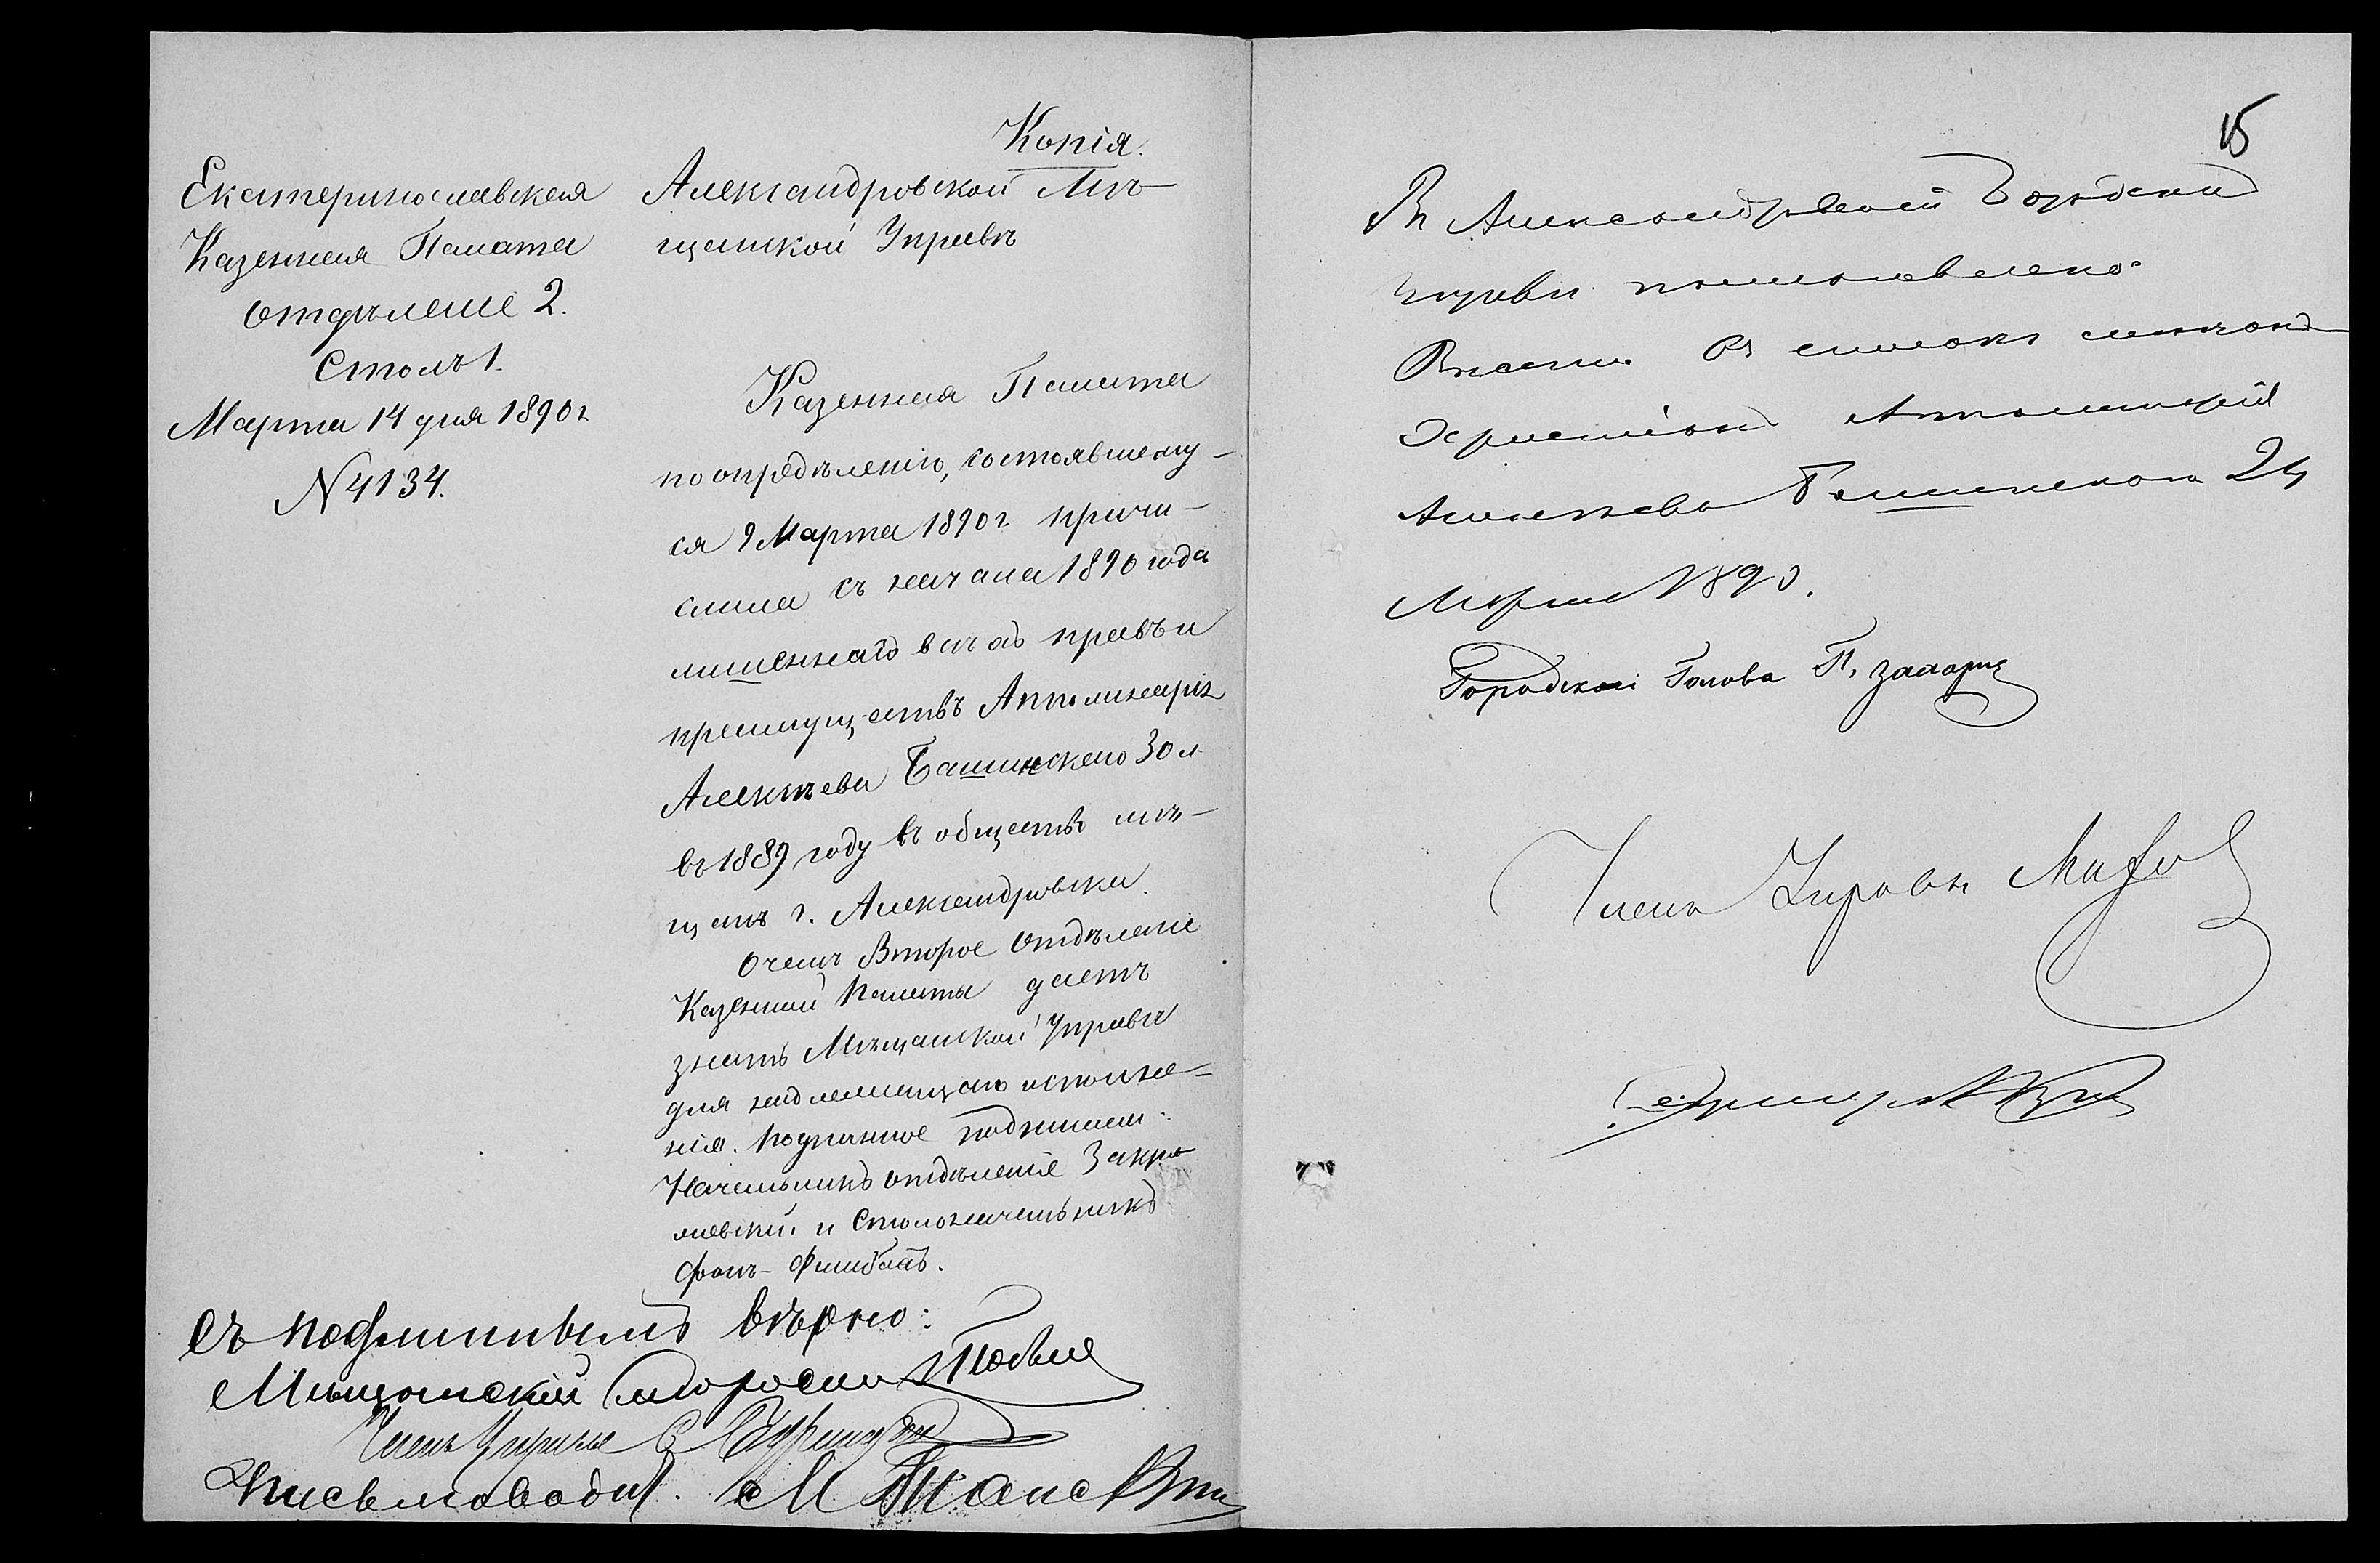 Копія.
Екатеринославская
Казенная Палата
Отдѣленіе 2.
Столъ 1.
Марта 14 дня 1890 г.
№ 4134.
Александровской Мѣ-
щанской Управѣ
Казенная Палата
по опредѣленію, состоявшему-
ся 9 Марта 1890 г. причи-
слила съ начала 1890 года
лишеннаго всѣхъ правъ и
преимуществъ Апполинарія
Алексѣева Башинскаго 30 л.
въ 1889 году въ общество мѣ-
щанъ г. Александровска.
О чемъ Второе Отдѣленіе
Казенной Палаты даетъ
знать Мѣщанской Управѣ
для надлежащаго исполне-
нія. Подлинное подписали:
Начальникъ отдѣленія Закрэ-
жевскій и Столоначальникъ
Фонъ-
Съ подлиннымъ вѣрно:
Мѣщанскій Староста
Членъ Управы
Письмоводит. М.
15
Въ Александровской Городской
Управѣ постановлено:
Внести въ списокъ мѣщанъ
христіанъ Апполинарія
Алексѣева Башинскаго 24
Марта 1890.
Городской Голова П.
Членъ Управы
Секретарь